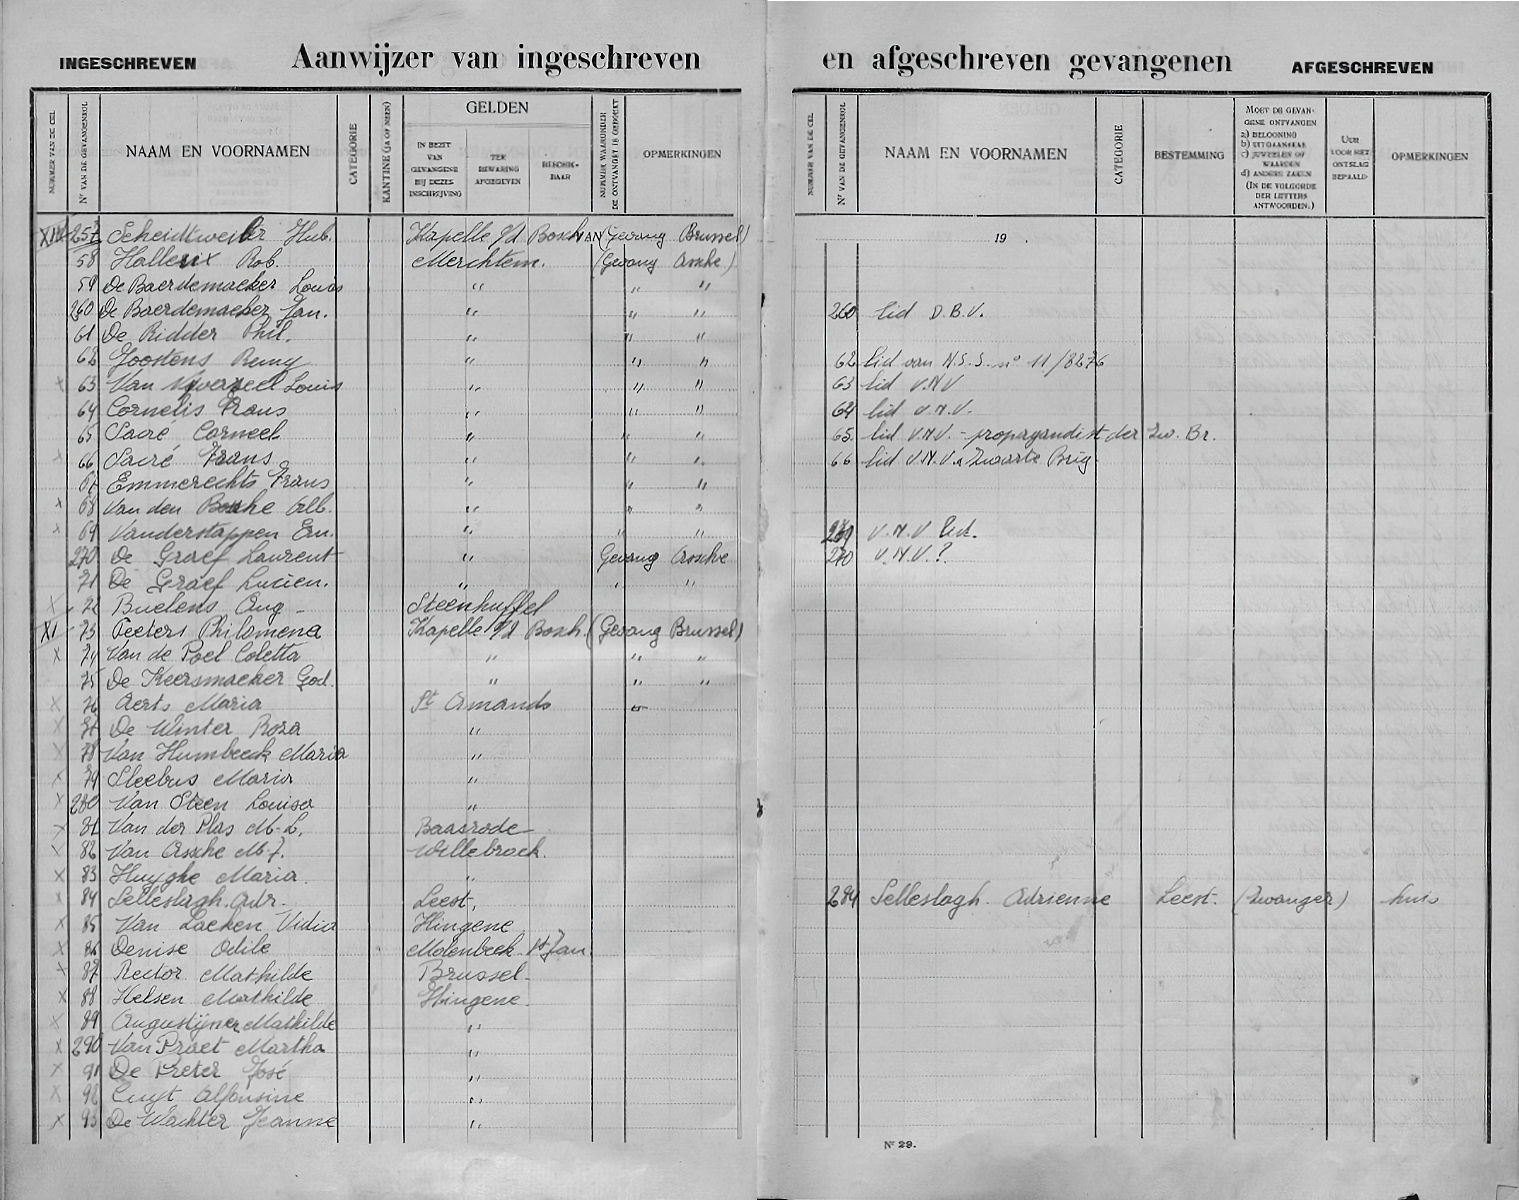 INGESCHREVEN Aanwijzer van ingeschreven en afgeschreven gevangenen AFGESCHREVEN
NUMMER VAN DE CEL
Nr VAN DE GEVANGENROL
NAAM EN VOORNAMEN
CATEGORIE
KANTINE (JA OF NEEN)
GELDEN
IN BEZIT VAN GEVANGENE BIJ DEZES INSCHRIJVING
TER BEWARING AFGEGEVEN
BESCHIKBAAR
NUMMER WAARONDER DE ONTVANGST IS GEBOEKT
OPMERKINGEN
NUMMER VAN DE CEL
Nr VAN DE GEVANGENROL
NAAM EN VOORNAMEN
CATEGORIE
BESTEMMING
MOET DE GEVANGENE ONTVANGEN
a) BELOONING
b) UITGAANSKAS
c) JUWEELEN OF WAARDEN
d) ANDERE ZAKEN
(IN DE VOLGORDE DER LETTERS ANTWOORDEN.)
UUR VOOR HET ONTSLAG BEPAALD
OPMERKINGEN
257 Scheidtweiler Hub. Kapelle o/d Bosch VAN (Gevang Brussel) 19
58 Halleux Rob. Merchtem. (Gevang Assche.)
59 De Baerdemaeker Louis " " "
260 De Baerdemaeker Jan. " " " 260 lid D.B.V.
61 De Ridder Phil. " " "
62 Joostens Remy " " " 62 Lid van N.S.S. n° 11/8276
x 63 Van Louis " " " 63 lid V.N.V
64 Cornelis Frans " " " 64 lid V.N.V.
65 Sacré Corneel " " " 65. lid V.N.V. - propagandist der Zw. Br.
x 66 Sacré Frans " " " 66 lid V.N.V. Zwarte Brig.
67 Emmerechts Frans " " "
x 68 Van den Alb. " " "
x 69 Vanderstappen Em. " " " 269 V.N.V Lid.
270 De Graef Laurent " Gevang Assche 270 V.N.V.?
71 De Graef Lucien. " " "
x 72 Buelens Aug - Steenhuffel
XI 73 Peeters Philomena Kapelle o/d Bosch. (Gevang Brussel)
x 74 Van de Poel Coletta " " "
75 De Keersmaeker God. " " "
x 76 Aerts Maria St Amands "
x 77 De Winter Rosa "
x 78 Van Humbeeck Maria "
x 79 Sleebus Maria "
x 280 Van Steen Louisa "
x 81 Van der Plas M-L. Baasrode
x 82 Van Assche M-J. Willebroek.
x 83 Huyghe Maria. "
x 84 Selleslagh Adr. Leest. 284 Selleslagh Adrienne Leest. (zwanger) huis
x 85 Van Laeken Hingene
x 86 Denise Odile Molenbeek St Jan.
x 87 Rector Mathilde Brussel.
x 88 Helsen Mathilde Hingene.
x 89 Mathilde "
x 290 Van Praet Martha "
x 91 De Preter José "
x 92 Luyt Alfonsine "
x 93 De Wachter Jeanne "
Nr 29.